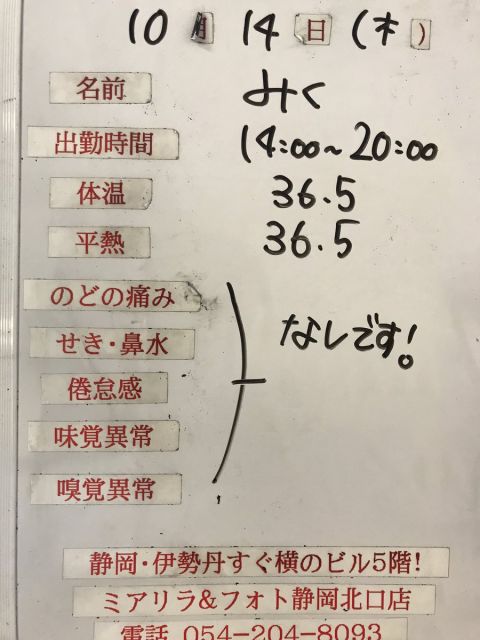 10月14日(木)
名前 みく
出勤時間 14:00~20:00
体温 36.5
平熱 36.5
のどの痛み
せき・鼻水
倦怠感
味覚異常
嗅覚異常
なしです!
静岡・伊勢丹すぐ横のビル5階!
ミアリラ&フォト静岡北口店
電話 054-204-8093